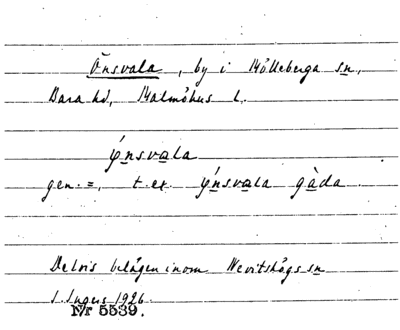 Önsvala, by i Mölleberga sn,
Bara hd, Malmöhus l.
ýnsvala
gen. =, t. ex. ýnsvala gàda
Delvis belägen inom Nevitshögs sn
S. Ingers 1926.
Nr 5539.